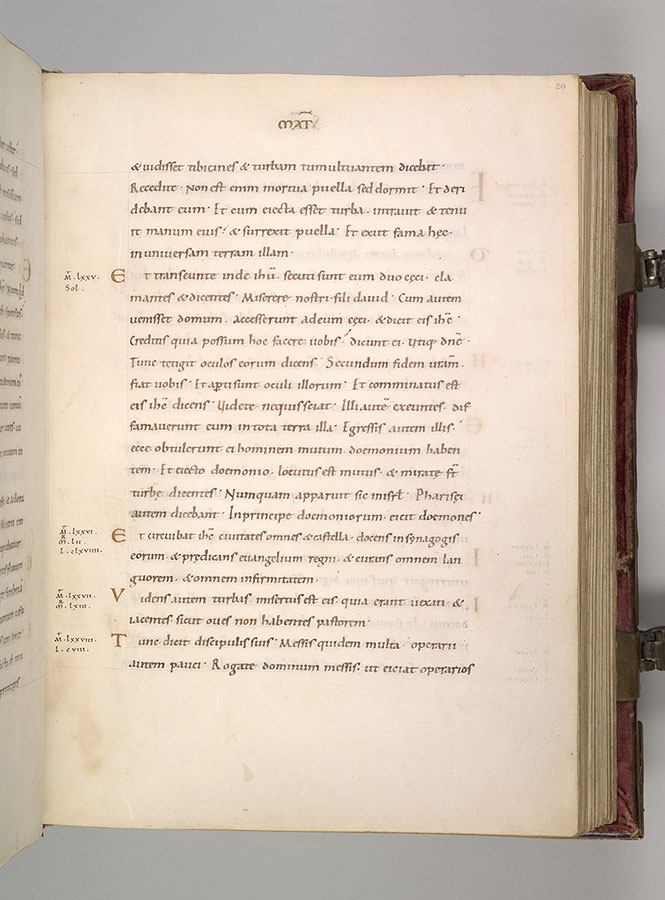 20
MAT̄
& uidisset tibicines & turbam tumultuantem dicebat·
Recedite· Non est enim mortua puella sed dormit· Et deri
debant eum· Et cum eiecta esset turba· intrauit & tenu
it manum eius· & surrexit puella· Et exiit fama hęc·
in uniuersam terram illam·
M̄·lxxv·
Sol·
Et transeunte inde ih̄u· secuti sunt eum duo cęci· cla
mantes & dicentes· Miserere nostri· fili dauid· Cum autem
uenisset domum· accesserunt ad eum cęci· & dicit eis ih̄c·
Creditis quia possum hoc facere uobis· Dicunt ei· Utiq; dn̄e·
Tunc tetigit oculos eorum dicens· Secundum fidem ur̄am·
fiat uobis· Et aperti sunt oculi illorum· Et comminatus est
eis ih̄c dicens· Uidete nequis sciat· Illi autē exeuntes· dif
famauerunt eum in tota terra illa· Egressis autem illis·
ecce obtulerunt ei hominem mutum· doemonium haben
tem· Et eiecto doemonio· locutus est mutus· & mirate st̄
turbę dicentes· Numquam apparuit sic in isr̄l· Pharisęi
autem dicebant· In principe doemoniorum· eicit doemones·
M̄·lxxvi·
R̄·lii·
L·clxviiii·
Et circuibat ih̄c ciuitates omnes & castella· docens in synagogis
eorum· & predicans euangelium regni· & curans omnem lan
guorem· & omnem infirmitatem·
M̄·lxxvii·
R̄·lxiii·
Uidens autem turbas misertus est eis· quia erant uexati· &
iacentes sicut oues non habentes pastorem·
M̄·lxxviii·
L·cviii·
Tunc dicit discipulis suis· Messis quidem multa· operarii
autem pauci· Rogate dominum messis· ut eiciat operarios